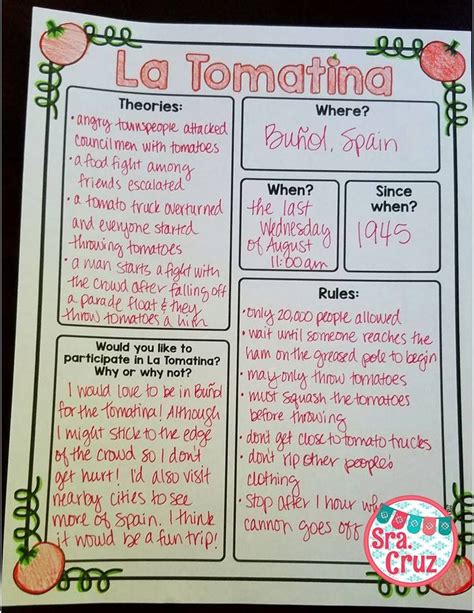 La Tomatina
Theories:
• angry townspeople attacked
councilmen with tomatoes
• a food fight among
friends escalated
• a tomato truck overturned
and everyone started
throwing tomatoes
• a man starts a fight with
the crowd after falling off
a parade float & they
throw tomatoes a him
Where?
Buñol, Spain
When?
the last
Wednesday
of August
11:00am
Since
when?
1945
Would you like to
participate in La Tomatina?
Why or why not?
I would love to be in Buñol
for the Tomatina! Although
I might stick to the edge
of the crowd so I don't
get hurt! I'd also visit
nearby cities to see
more of Spain. I think
it would be a fun trip!
Rules:
• only 20,000 people allowed
• wait until someone reaches the
ham on the greased pole to begin
• may only throw tomatoes
• must squash the tomatoes
before throwing
• don't get close to tomato trucks
• don't rip other people's
clothing
• stop after 1 hour
cannon goes off
Sra.
Cruz